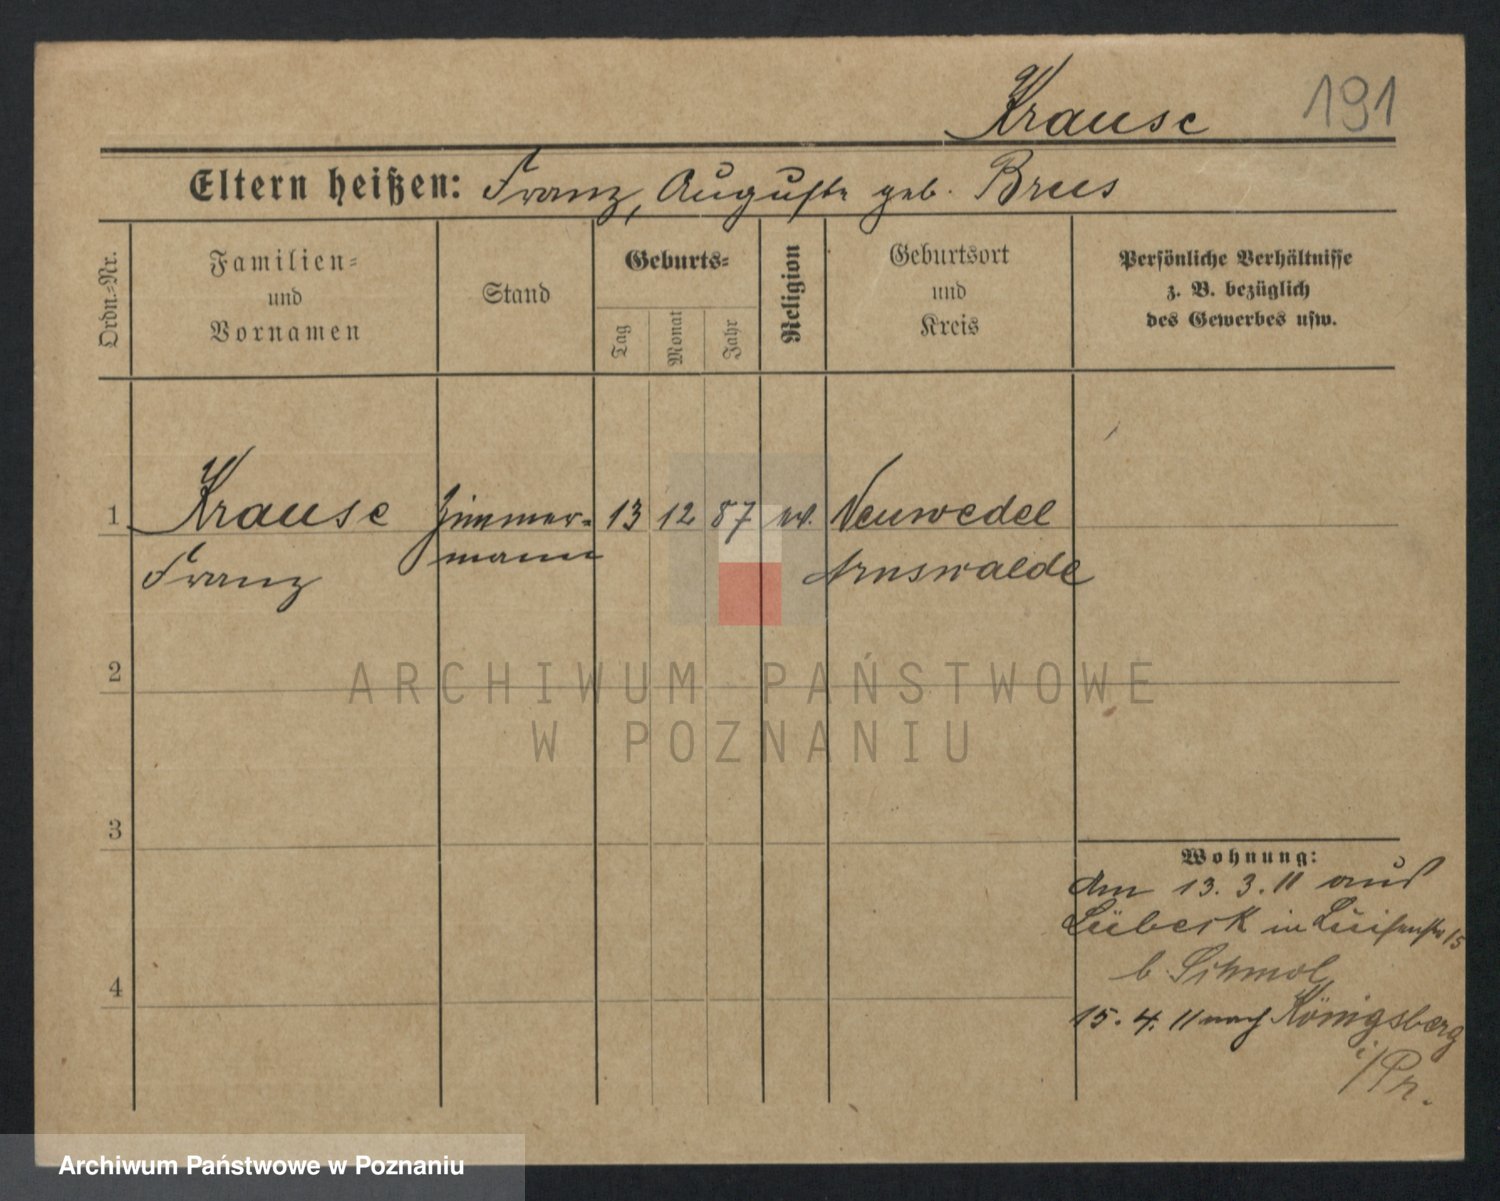 Krause 191
Eltern heißen: Franz, Auguste geb. Brees
Ordn.-Nr.
Familien-
und
Vornamen
Stand
Geburts-
Tag
Monat
Jahr
Religion
Geburtsort
und
Kreis
Persönliche Verhältnisse
z. B. bezüglich
des Gewerbes usw.
1 Krause Zimmer- 13 12 87 ev. Neuwedel
Franz mann Arnswalde
2
3
4
Wohnung:
Am 13. 3. 11 aus
Lübeck in Luisenstr 15
b. Schmol
15. 4. 11 nach Königsberg
i/Pr.
ARCHIWUM PAŃSTWOWE
W POZNANIU
Archiwum Państwowe w Poznaniu